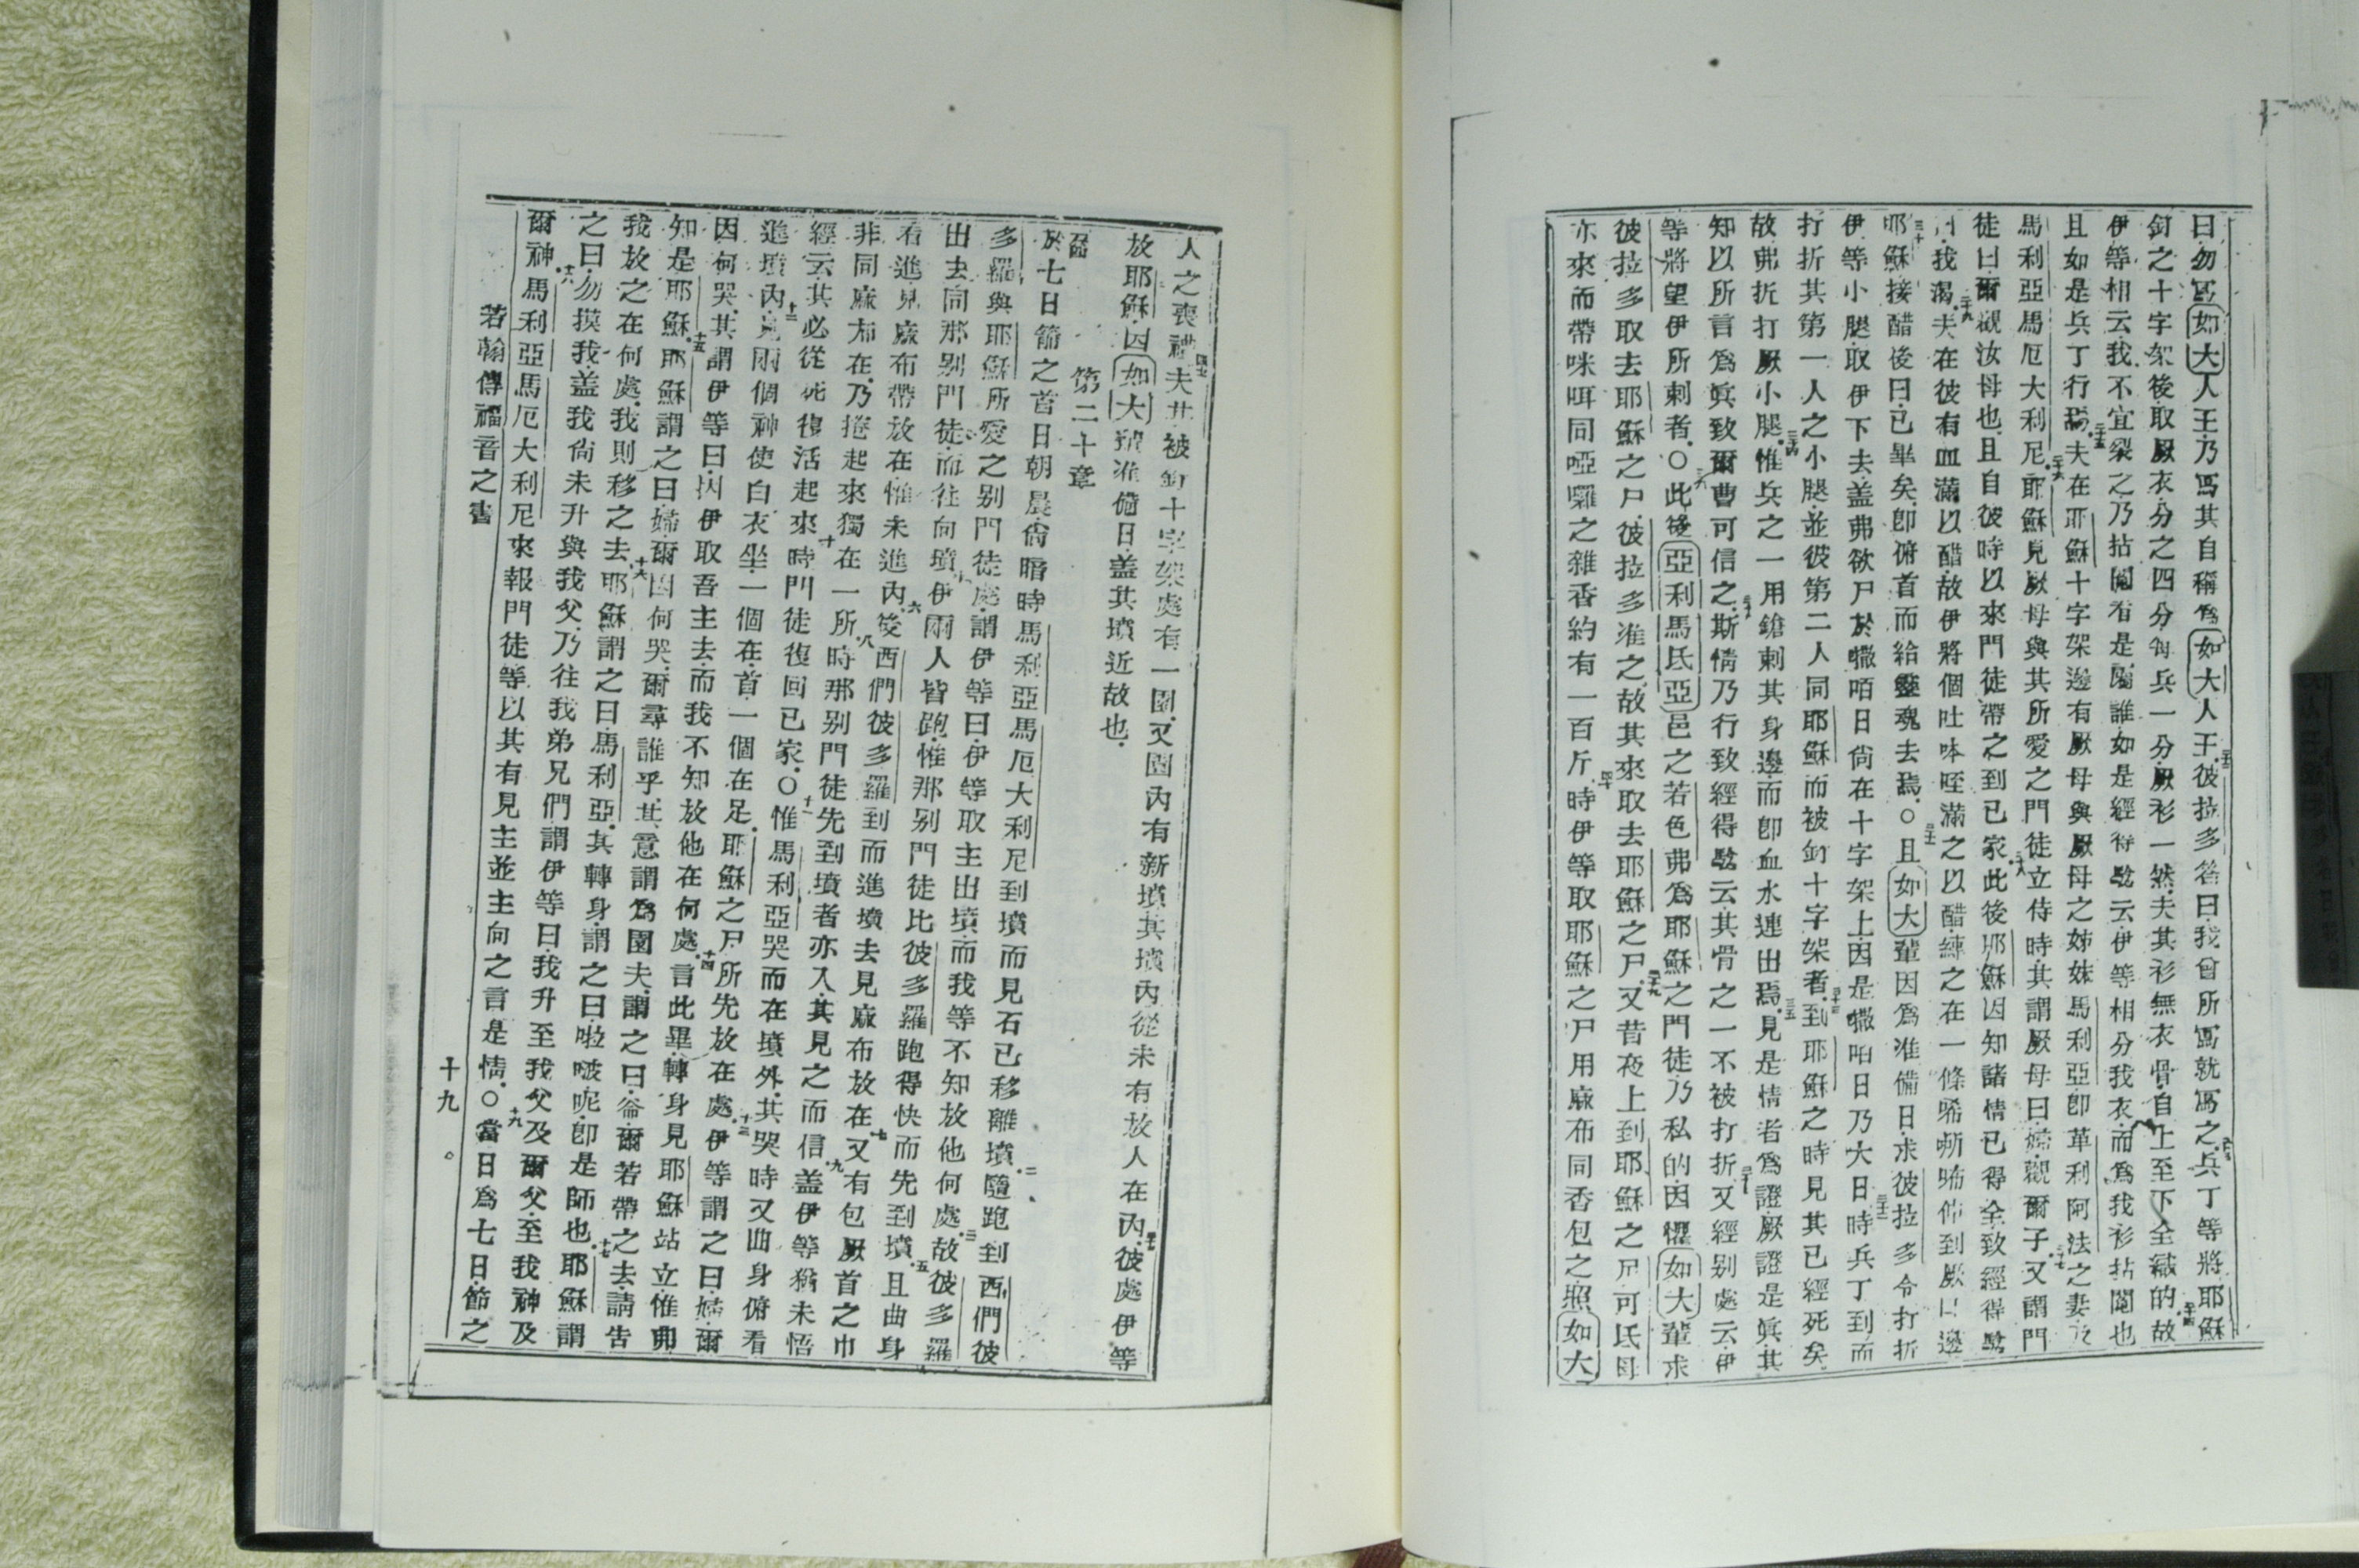 曰勿寫如大人王乃寫其自稱爲如大人王彼拉多答曰我曾所寫就寫之兵丁等將耶穌
釘之十字架後取厥衣分之四分每兵一分厥衫一然夫其衫無衣骨自上至下全織的故
伊等相云我不宜裂之乃拈鬮看是屬誰如是經得驗云伊等相分我衣而爲我衫拈鬮也
且如是兵丁行焉夫在耶穌十字架邊有厥母與厥母之姊妹馬利亞卽革利阿法之妻及
馬利亞馬厄大利尼耶穌見厥母與其所愛之門徒立侍時其謂厥母曰婦觀爾子又謂門
徒曰爾觀汝母也且自彼時以來門徒帶之到已家此後耶穌因知諸情已得全致經得驗
我渴夫在彼有血滿以醋故伊將個吐㖿咥滿之以醋縳之在一條唏嘶咘伸到厥口邊
耶穌接醋後曰已畢矣卽俯首而給靈魂去焉○且如大輩因爲准備日求彼拉多令打折
伊等小腿取伊下去盖弗欲尸於𠾖咟日尙在十字架上因是𠾖咟日乃大日時兵丁到而
打折其第一人之小腿並彼第二人同耶穌而被釘十字架者到耶穌之時見其已經死矣
故弗折打厥小腿惟兵之一用鎗刺其身邊而卽血水連出焉見是情者爲證厥證是眞其
知以所言爲眞致爾曹可信之斯情乃行致經得驗云其骨之一不被打折又經别處云伊
等將望伊所刺者○此後亞利馬氐亞邑之若色弗爲耶穌之門徒乃私的因懼如大輩求
彼拉多取去耶穌之尸彼拉多准之故其來取去耶穌之尸又昔夜上到耶穌之尼可氐母
亦來而帶咪咡同啞囉之雜香約有一百斤時伊等取耶穌之尸用麻布同香包之照如大
人之喪禮夫其被釘十字架處有一園又園內有新墳其墳內從未有放人在內彼處伊等
放耶穌因如大預准備日盖其墳近故也
第二十章
於七日節之首日朝晨尙暗時馬利亞馬厄大利尼到墳而見石已移離墳隨跑到西們彼
多羅與耶穌所愛之别門徒處謂伊等曰伊等取主出墳而我等不知放他何處故彼多羅
出去同那别門徒而往向墳伊兩人皆跑惟那别門徒比彼多羅跑得快而先到墳且曲身
看進見麻布帶放在惟未進內後西們彼多羅到而進墳去見麻布放在又有包厥首之巾
非同麻布在乃捲起來獨在一所時那别門徒先到墳者亦入其見之而信盖伊等猶未悟
經云其必從死復活起來時門徒復回已家○惟馬利亞哭而在墳外其哭時又曲身俯看
進墳內見兩個神使白衣坐一個在首一個在足耶穌之尸所先放在處伊等謂之曰婦爾
因何哭其謂伊等曰因伊取吾主去而我不知放他在何處言此畢轉身見耶穌站立惟弗
知是耶穌耶穌謂之曰婦爾因何哭爾尋誰乎其意謂爲園夫謂之曰爺爾若帶之去請告
我放之在何處我則移之去耶穌謂之曰馬利亞其轉身謂之曰啦㖮呢卽是師也耶穌謂
之曰勿摸我盖我尙未升與我父乃往我弟兄們謂伊等曰我升至我父及爾父至我神及
爾神馬利亞馬厄大利尼來報門徒等以其有見主並主向之言是情○當日爲七日節之
若翰傳福音之書
十九